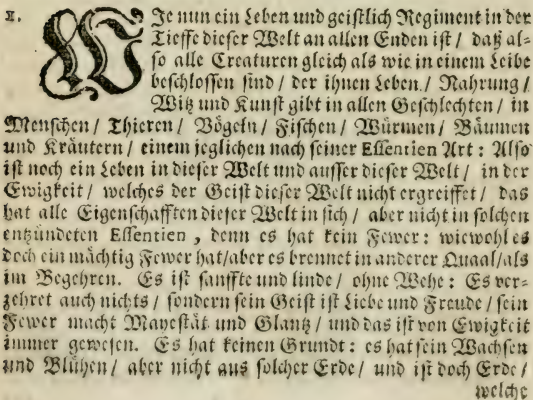 1. WJe nun ein Leben und geistlich Regiment in der
Tieffe dieser Welt an allen Enden ist / daß al-
so alle Creaturen gleich als wie in einem Leibe
beschlossen sind / der ihnen Leben / Nahrung /
Witz und Kunst gibt in allen Geschlechten / in
Menschen / Thieren / Vögeln / Fischen / Würmen / Bäumen
und Kräutern / einem jeglichen nach seiner Essentien Art : Also
ist noch ein Leben in dieser Welt und ausser dieser Welt / in der
Ewigkeit / welches der Geist dieser Welt nicht ergreiffet / das
hat alle Eigenschafften dieser Welt in sich / aber nicht in solchen
entzündeten Essentien , denn es hat kein Fewer : wiewohl es
doch ein mächtig Fewer hat/aber es brennet in anderer Quaal/als
im Begehren. Es ist sanffte und linde / ohne Wehe : Es ver-
zehret auch nichts / sondern sein Geist ist Liebe und Freude / sein
Fewer macht Mayestät und Glantz / und das ist von Ewigkeit
immer gewesen. Es hat keinen Grundt : es hat sein Wachsen
und Blühen / aber nicht aus solcher Erde / und ist doch Erde /
welche